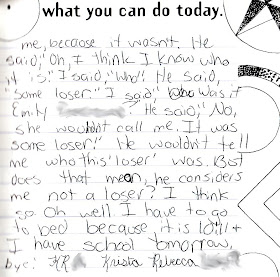 what you can do today.
me, because it wasnt. He
said, "Oh, I think I know who
it is." I said, "Who". He said,
"some loser." I said, "Was it
Emily ? He said," No,
she wouldnt call me. It was
some loser." He wouldn't tell
me who this 'loser' was. But
does that mean, he considers
me not a loser? I think
so. Oh well. I have to go
to bed because, it is 10:11 +
I have school tomorrow,
bye! KR Krista Rebecca